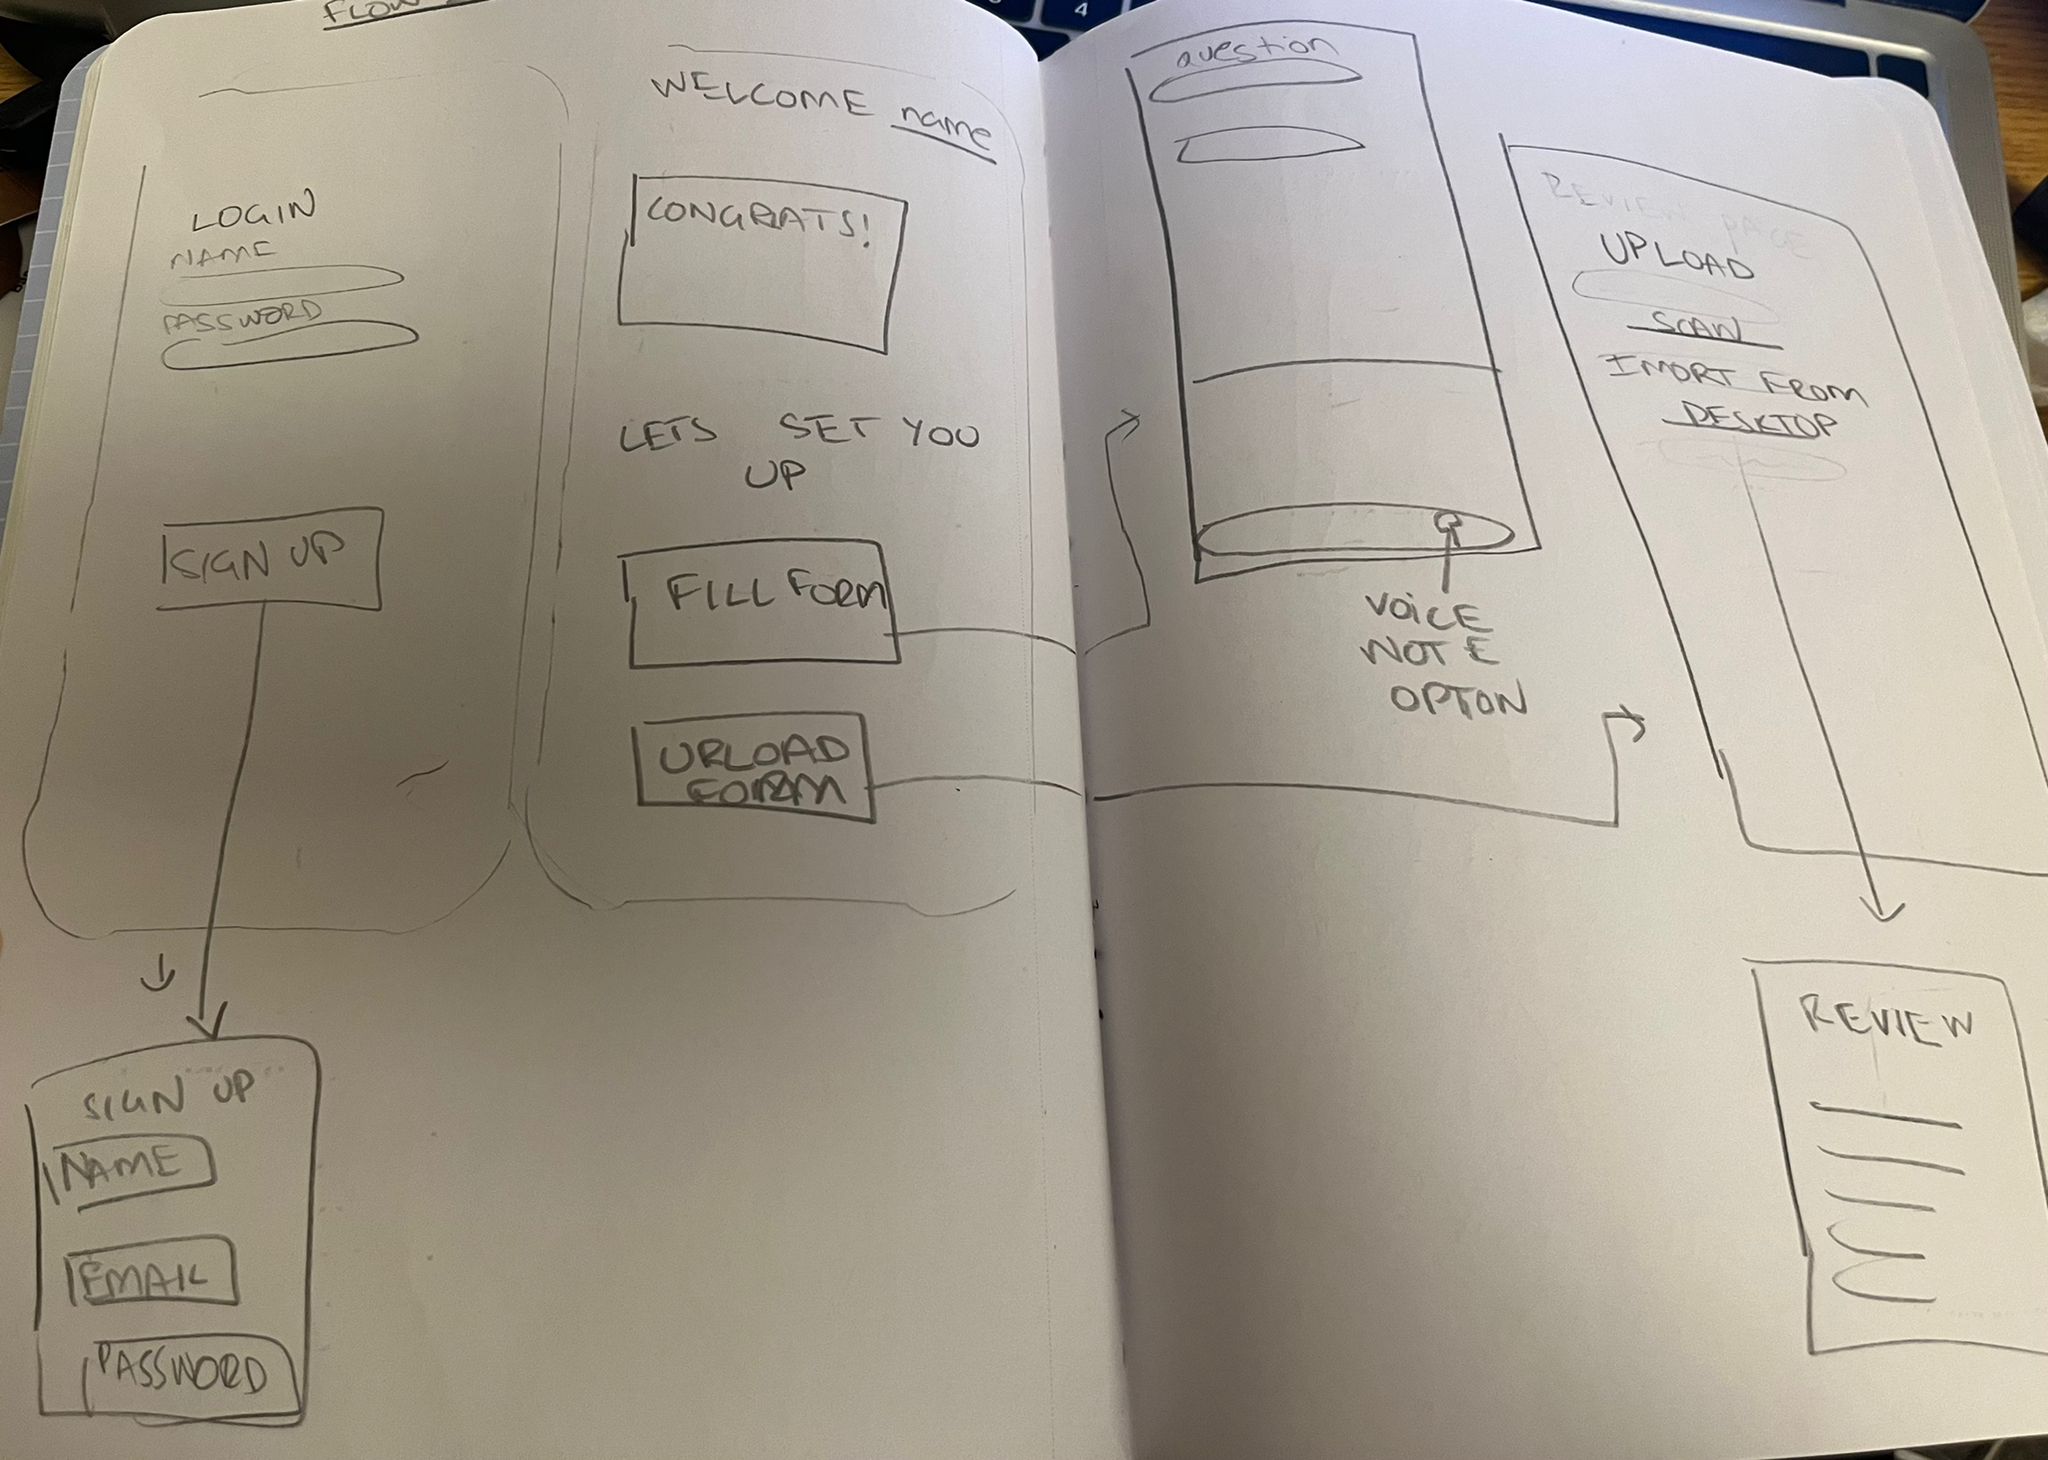 FLOW
LOGIN
NAME
PASSWORD
SIGN UP
SIGN UP
NAME
EMAIL
PASSWORD
WELCOME name
CONGRATS!
LETS SET YOU
UP
FILL FORM
UPLOAD
FORM
question
VOICE
NOTE
OPTON
REVIEW PAGE
UPLOAD
SCAN
IMORT FROM
DESKTOP
REVIEW
4